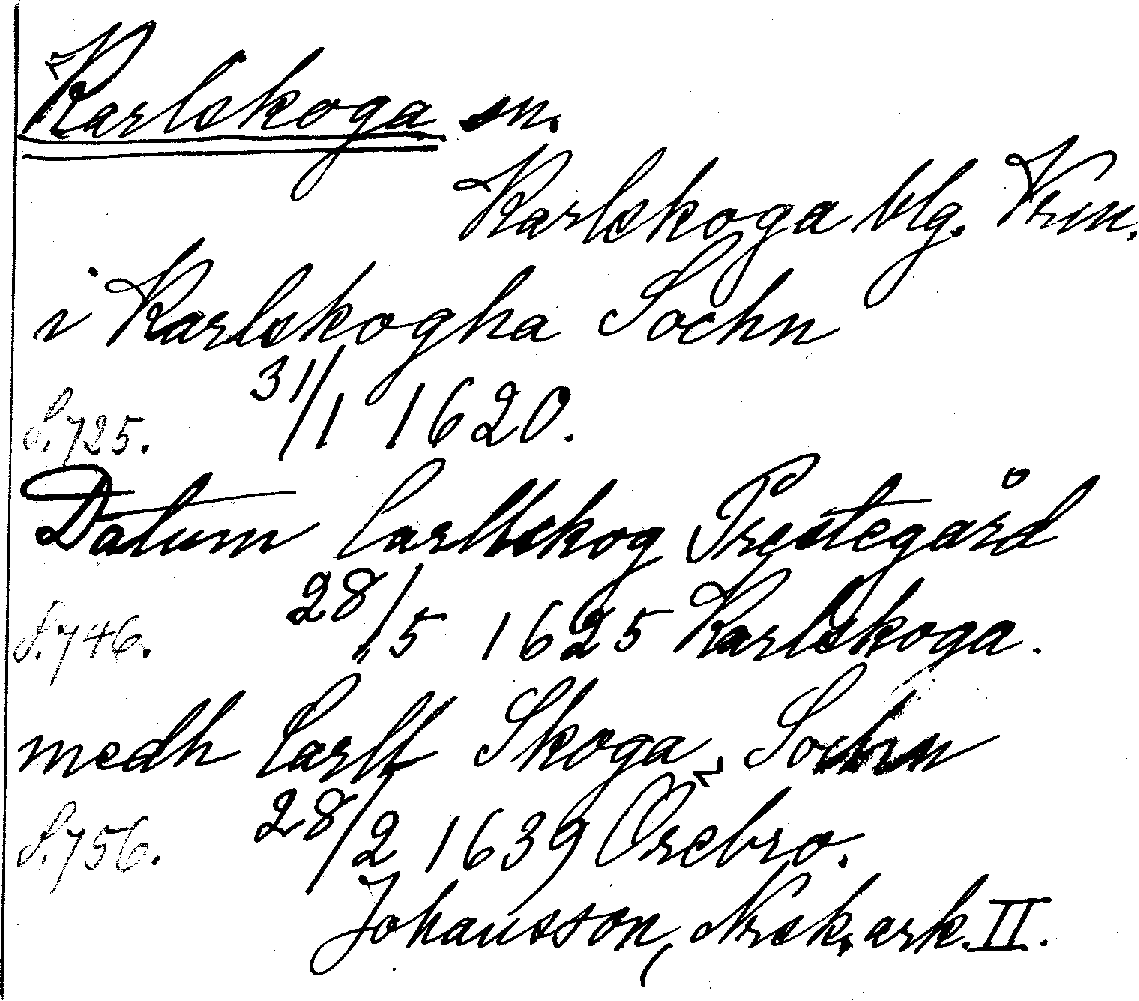 Karlskoga sn.
Karlskoga blg. Vrm.
i Karlskogha Sochn
S. 725. 31/1 1620.
Datum Carllskog Prestegård
S. 746. 28/5 1625 Karlskoga.
medh Carll Skoga Sochn
S. 756. 28/2 1639 Örebro.
Johansson, Norsk. ark. II.